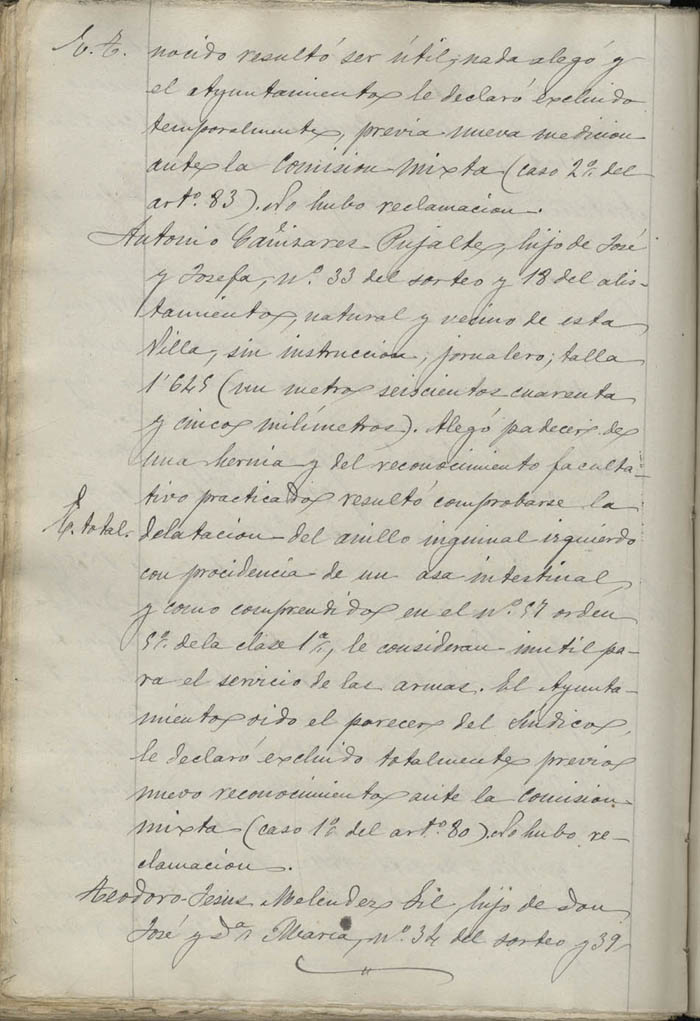 E. T. nocido resultó ser útil; nada alegó y
el Ayuntamiento le declaró excluido
temporalmente, previa nueva medicion
ante la Comision mixta (caso 2º del
artº. 83). No hubo reclamacion.
Antonio Cañizares Pujalte, hijo de José
y Josefa, nº. 33 del sorteo y 18 del alis-
tamiento, natural y vecino de esta
Villa, sin instruccion, jornalero; talla
1'645 (un metro seiscientos cuarenta
y cinco milímetros). Alegó padecer de
una hernia y del reconocimiento faculta-
tivo practicado resultó comprobarse la
E. total. delatacion del anillo inguinal izquierdo
con procidencia de un asa intestinal,
y como comprendido en el nº. 57 orden
5º. de la clase 1ª, le consideran inutil pa-
ra el servicio de las armas. El Ayunta-
miento oido el parecer del Sindico,
le declaró excluido totalmente previo
nuevo reconocimiento ante la Comision
mixta (caso 1º del artº. 80). No hubo re-
clamacion.
Teodoro Jesus Melendez Gil, hijo de don
José y Dª María, nº. 34 del sorteo y 39